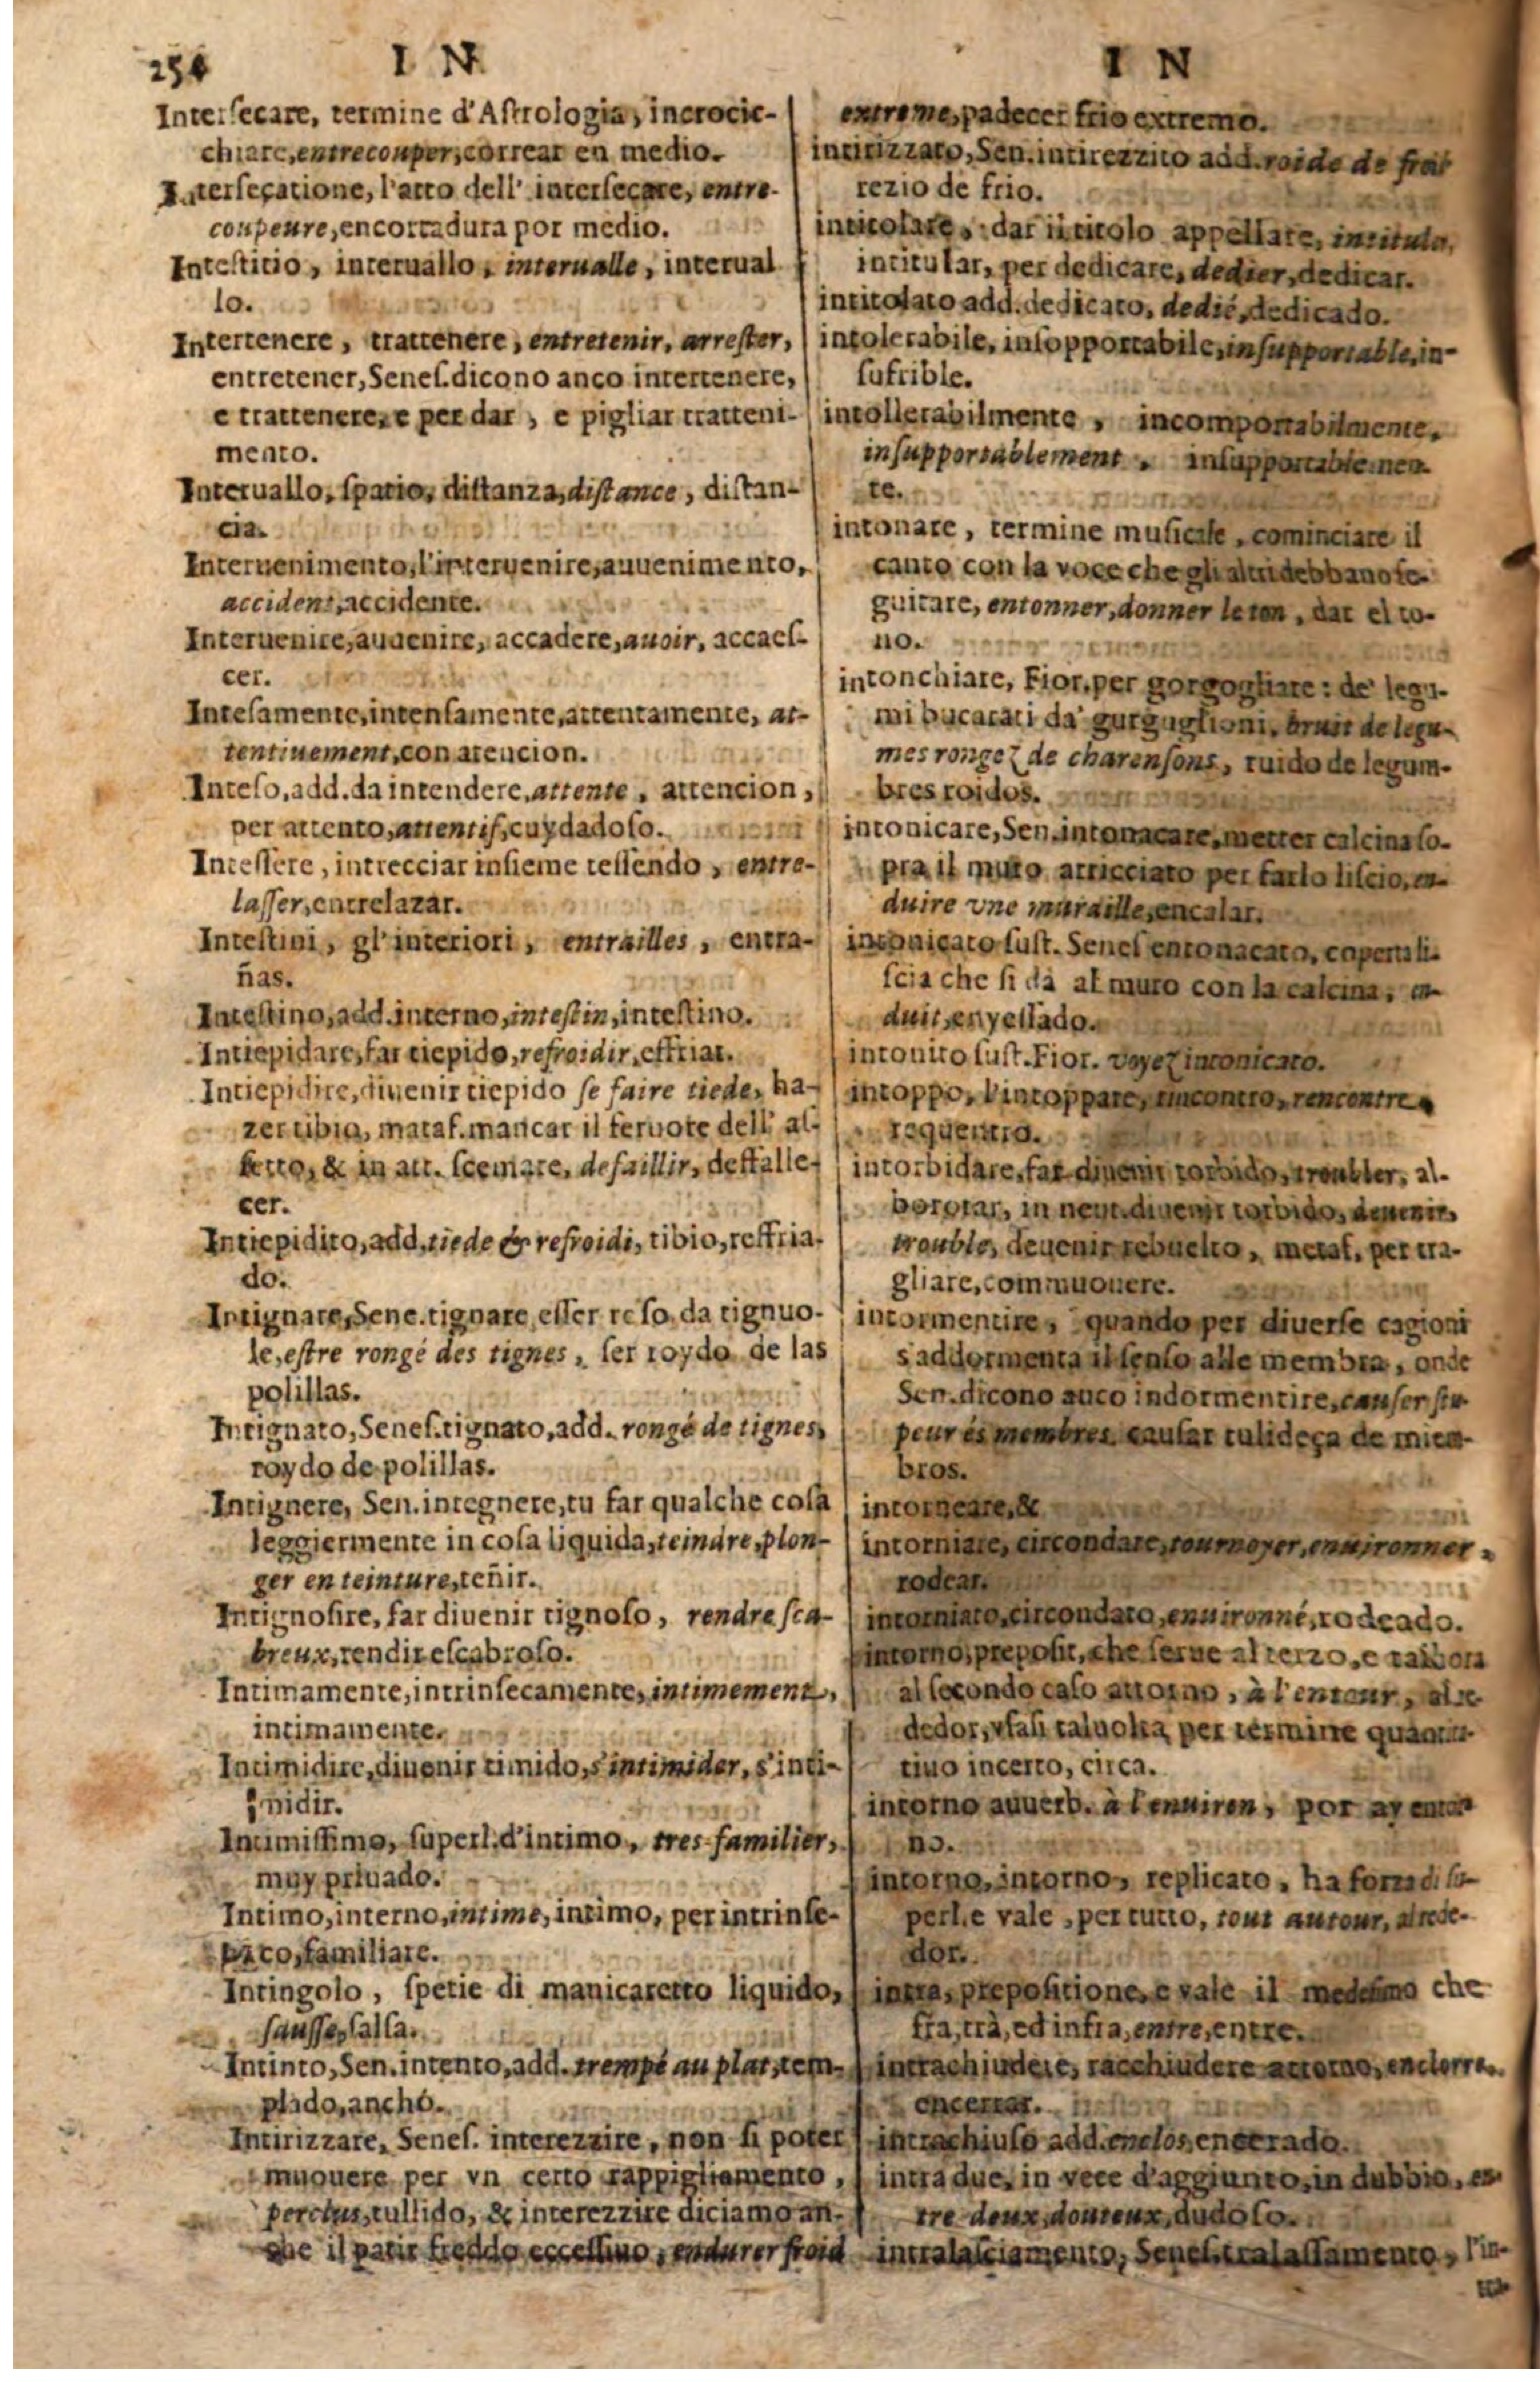 254 I N I N
Intersecare, termine d'Astrologia, incrocic-
chiare, entrecouper, correar en medio.
Intersecatione, l'atto dell' intersecare, entre-
coupeure, encorradura por medio.
Intestitio, interuallo, interualle, interual
lo.
Intertenere, trattenere, entretenir, arrester,
entretener, Senes. dicono anco intertenere,
e trattenere, e per dar, e pigliar tratteni-
mento.
Interuallo, spatio, distanza, distance, distan-
cia.
Interuenimento, l'interuenire, auuenimento,
accident, accidente.
Interuenire, auuenire, accadere, auoir, accaes-
cer.
Intesamente, intensamente, attentamente, at-
tentiuement, con atencion.
Inteso, add. da intendere, attente, attencion,
per attento, attentif, cuydadoso.
Intessere, intrecciar insieme tessendo, entre-
lasser, entrelazar.
Intestini, gl'interiori, entrailles, entra-
ñas.
Intestino, add. interno, intestin, intestino.
Intiepidare, far tiepido, refroidir, effriar.
Intiepidire, diuenir tiepido se faire tiede, ha-
zer tibio, mataf. mancar il feruore dell' af-
fetto, & in att. scemare, defaillir, desfalle-
cer.
Intiepidito, add. tiede & refroidi, tibio, reffria-
do.
Intignare, Sene. tignare, esser roso da tignuo-
le, estre rongé des tignes, ser roydo de las
polillas.
Intignato, Senes. tignato, add. rongé de tignes,
roydo de polillas.
Intignere, Sen. integnere, tu far qualche cosa
leggiermente in cosa liquida, teindre, plon-
ger en teinture, teñir.
Intignosire, far diuenir tignoso, rendre sca-
breux, rendir escabroso.
Intimamente, intrinsecamente, intimement,
intimamente.
Intimidire, diuenir timido, s'intimider, s'inti-
midir.
Intimissimo, superl. d'intimo, tres familier,
muy priuado.
Intimo, interno, intime, intimo, per intrinse-
co, familiare.
Intingolo, spetie di manicaretto liquido,
sausse, salsa.
Intinto, Sen. intento, add. trempé au plat, tem-
plado, ancho.
Intirizzare, Senes. interezzire, non si poter
muouere per vn certo rappigliamento,
perclus, tullido, & interezzire diciamo an-
che il patir freddo eccessiuo, endurer froid
extreme, padecer frio extremo.
intirizzato, Sen. intirezzito add. roide de froit
rezio de frio.
intitolare, dar il titolo appellare, intitulo,
intitular, per dedicare, dedier, dedicar.
intitolato add. dedicato, dedié, dedicado.
intolerabile, insopportabile, insupportable, in-
sufrible.
intollerabilmente, incomportabilmente,
insupportablement, insupportablemen
te.
intonare, termine musicale, cominciare il
canto con la voce che gli altri debbano se-
guitare, entonner, donner le ton, dar el to-
no.
intonchiare, Fior. per gorgogliare: de' legu-
mi bucarati da' gurguglioni, bruit de legu-
mes rongez de charensons, ruido de legum-
bres roidos.
intonicare, Sen. intonacare, metter calcina so-
pra il muro arricciato per farlo liscio, en-
duire vne muraille, encalar.
intonicato sust. Senes entonacato, coperta li-
scia che si dà al muro con la calcina, en-
duit, enyessado.
intonito sust. Fior. voyez intonicato.
intoppo, l'intoppare, rincontro, rencontre,
requentro.
intorbidare, far diuenir torbido, troubler, al-
borotar, in neut. diuenir torbido, deuenir
trouble, deuenir rebuelto, metaf. per tra-
gliare, commuouere.
intormentire, quando per diuerse cagioni
s'addormenta il senso alle membra, onde
Sen. dicono anco indormentire, causer stu-
peur és membres causar tulideça de miem-
bros.
intorneare, &
intorniare, circondare, tournoyer, enuironner,
rodear.
intorniato, circondato, enuironné, rodeado.
intorno, preposit, che serue al terzo, e talhora
al secondo caso attorno, à l'entour, alre-
dedor, vsasi taluolta per termine quantita-
tiuo incerto, circa.
intorno auuerb. à l'enuiron, por ay entor
no.
intorno, intorno, replicato, ha forza di su-
perl. e vale, per tutto, tout autour, alrede-
dor.
intra, prepositione, e vale il medesimo che
fra, trà, ed infra, entre, entre.
intrachiudere, racchiudere attorno, enclorre,
encerrar.
intrachiuso add. enclos, encerado.
intra due, in vece d'aggiunto, in dubbio, en-
tre deux, douteux, dudoso.
intralasciamento, Senes. tralassamento, l'in-